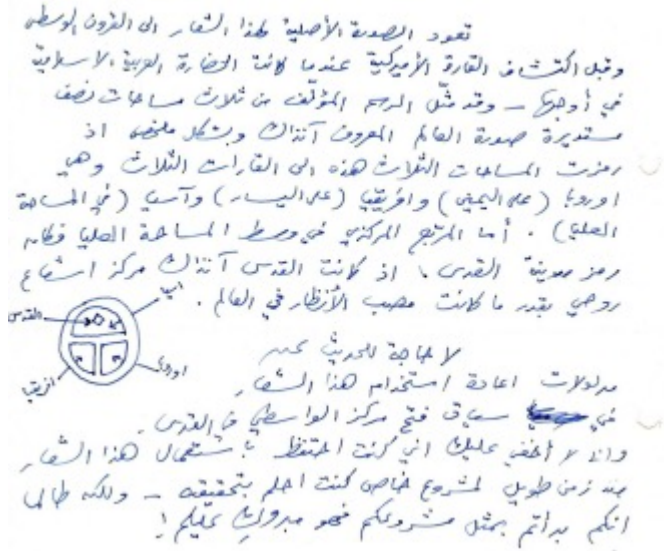 تعود الصورة الأصلية لهذا الشعار الى القرون الوسطى
وقبل اكتشاف القارة الأميركية عندما كانت الحضارة العربية الاسلامية
في أوجها – وقد مثّل الرسم المؤلّف من ثلاث مساحات نصف
مستديرة صورة العالم المعروف آنذاك وبشكل ملخص اذ
رمزت المساحات الثلاث هذه الى القارات الثلاث وهي
اوروبا (على اليمين) وافريقيا (على اليسار) وآسيا (في المساحة
العليا). أما المربّع المركزي في وسط المساحة العليا فكان
رمز مدينة القدس، اذ كانت القدس آنذاك مركز اشعاع
روحي بقدر ما كانت مصب الأنظار في العالم.
آسيا
القدس
اوروبا
افريقيا
لا حاجة للحديث عن
مدلولات اعادة استخدام هذا الشعار
في سياق فتح مركز الواسطي في القدس.
وانا لا أخفي عليك اني كنت احتفظ باستعمال هذا الشعار
منذ زمن طويل لمشروع خاص كنت احلم بتحقيقه – ولكنه طالما
انكم بدأتم بمثل مشروعكم فهو مبروك عليكم!